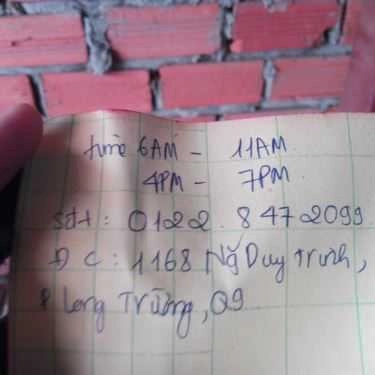 time 6AM - 11AM
4PM - 7PM
Sđt: 0122.8472099
Đ C: 1168 Ng Duy Trinh,
P Long Trường, Q9